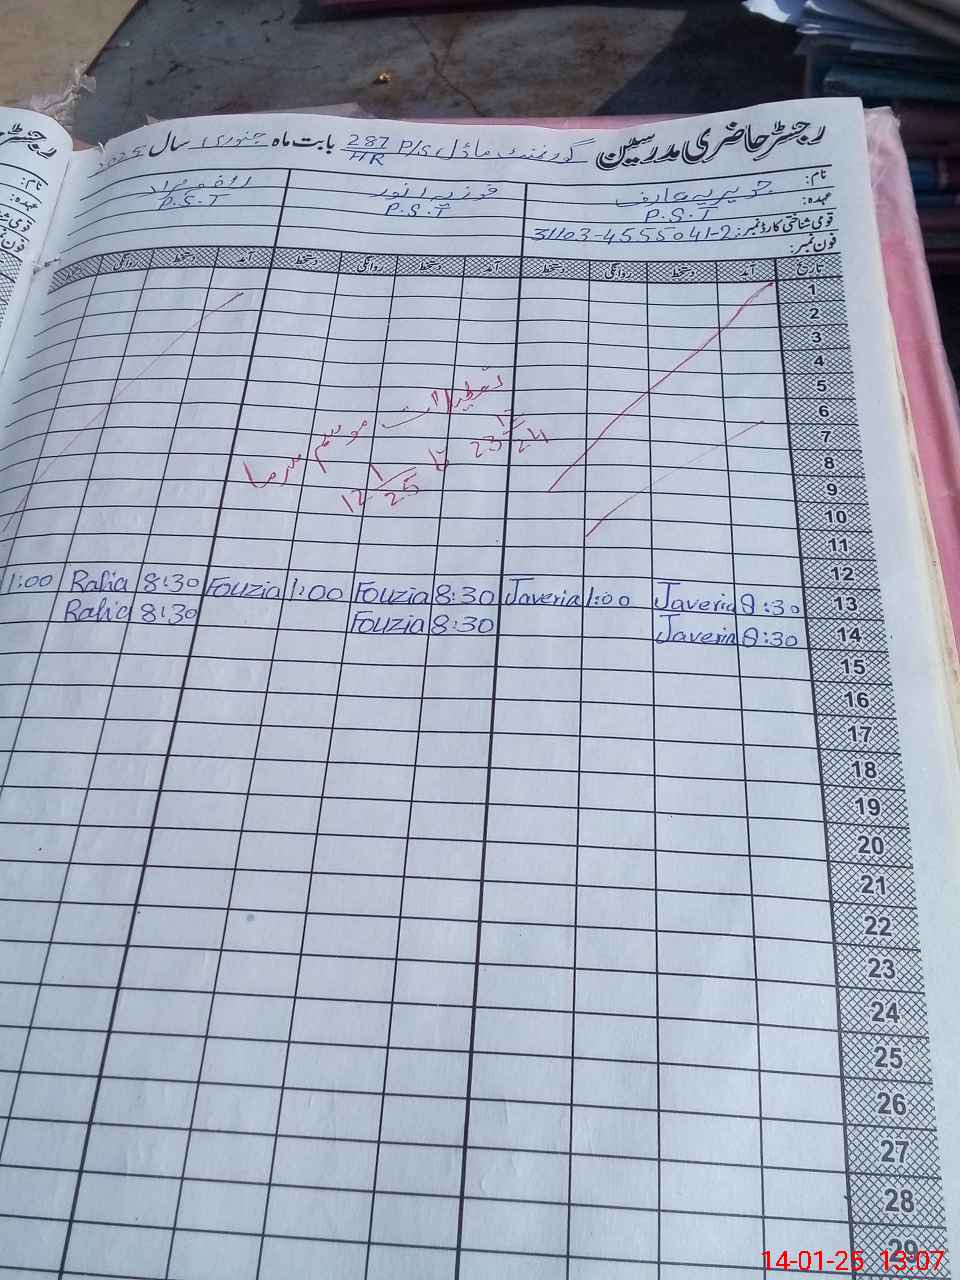 رجسٹر حاضری مدرسین گورنمنٹ ماڈل P/S 287/HR بابت ماہ جنوری سال 2025
نام: جویریہ عارف فوزیہ انور
عہدہ: P.S.T P.S.T P.S.T
قومی شناختی کارڈ نمبر: 31103-4555041-2
فون نمبر:
تاریخ آمد دستخط روانگی دستخط آمد دستخط روانگی دستخط آمد دستخط روانگی
1
2
3
4
5
6
7
8
9
10
11
تعطیلات موسم سرما
23 12/24 تا 12 1/25
12
13 8:30 Javeria 1:00 Javeria 8:30 Fouzia 1:00 Fouzia 8:30 Rafia 1:00
14 8:30 Javeria 8:30 Fouzia 8:30 Rafia
15
16
17
18
19
20
21
22
23
24
25
26
27
28
29
14-01-25 13:07